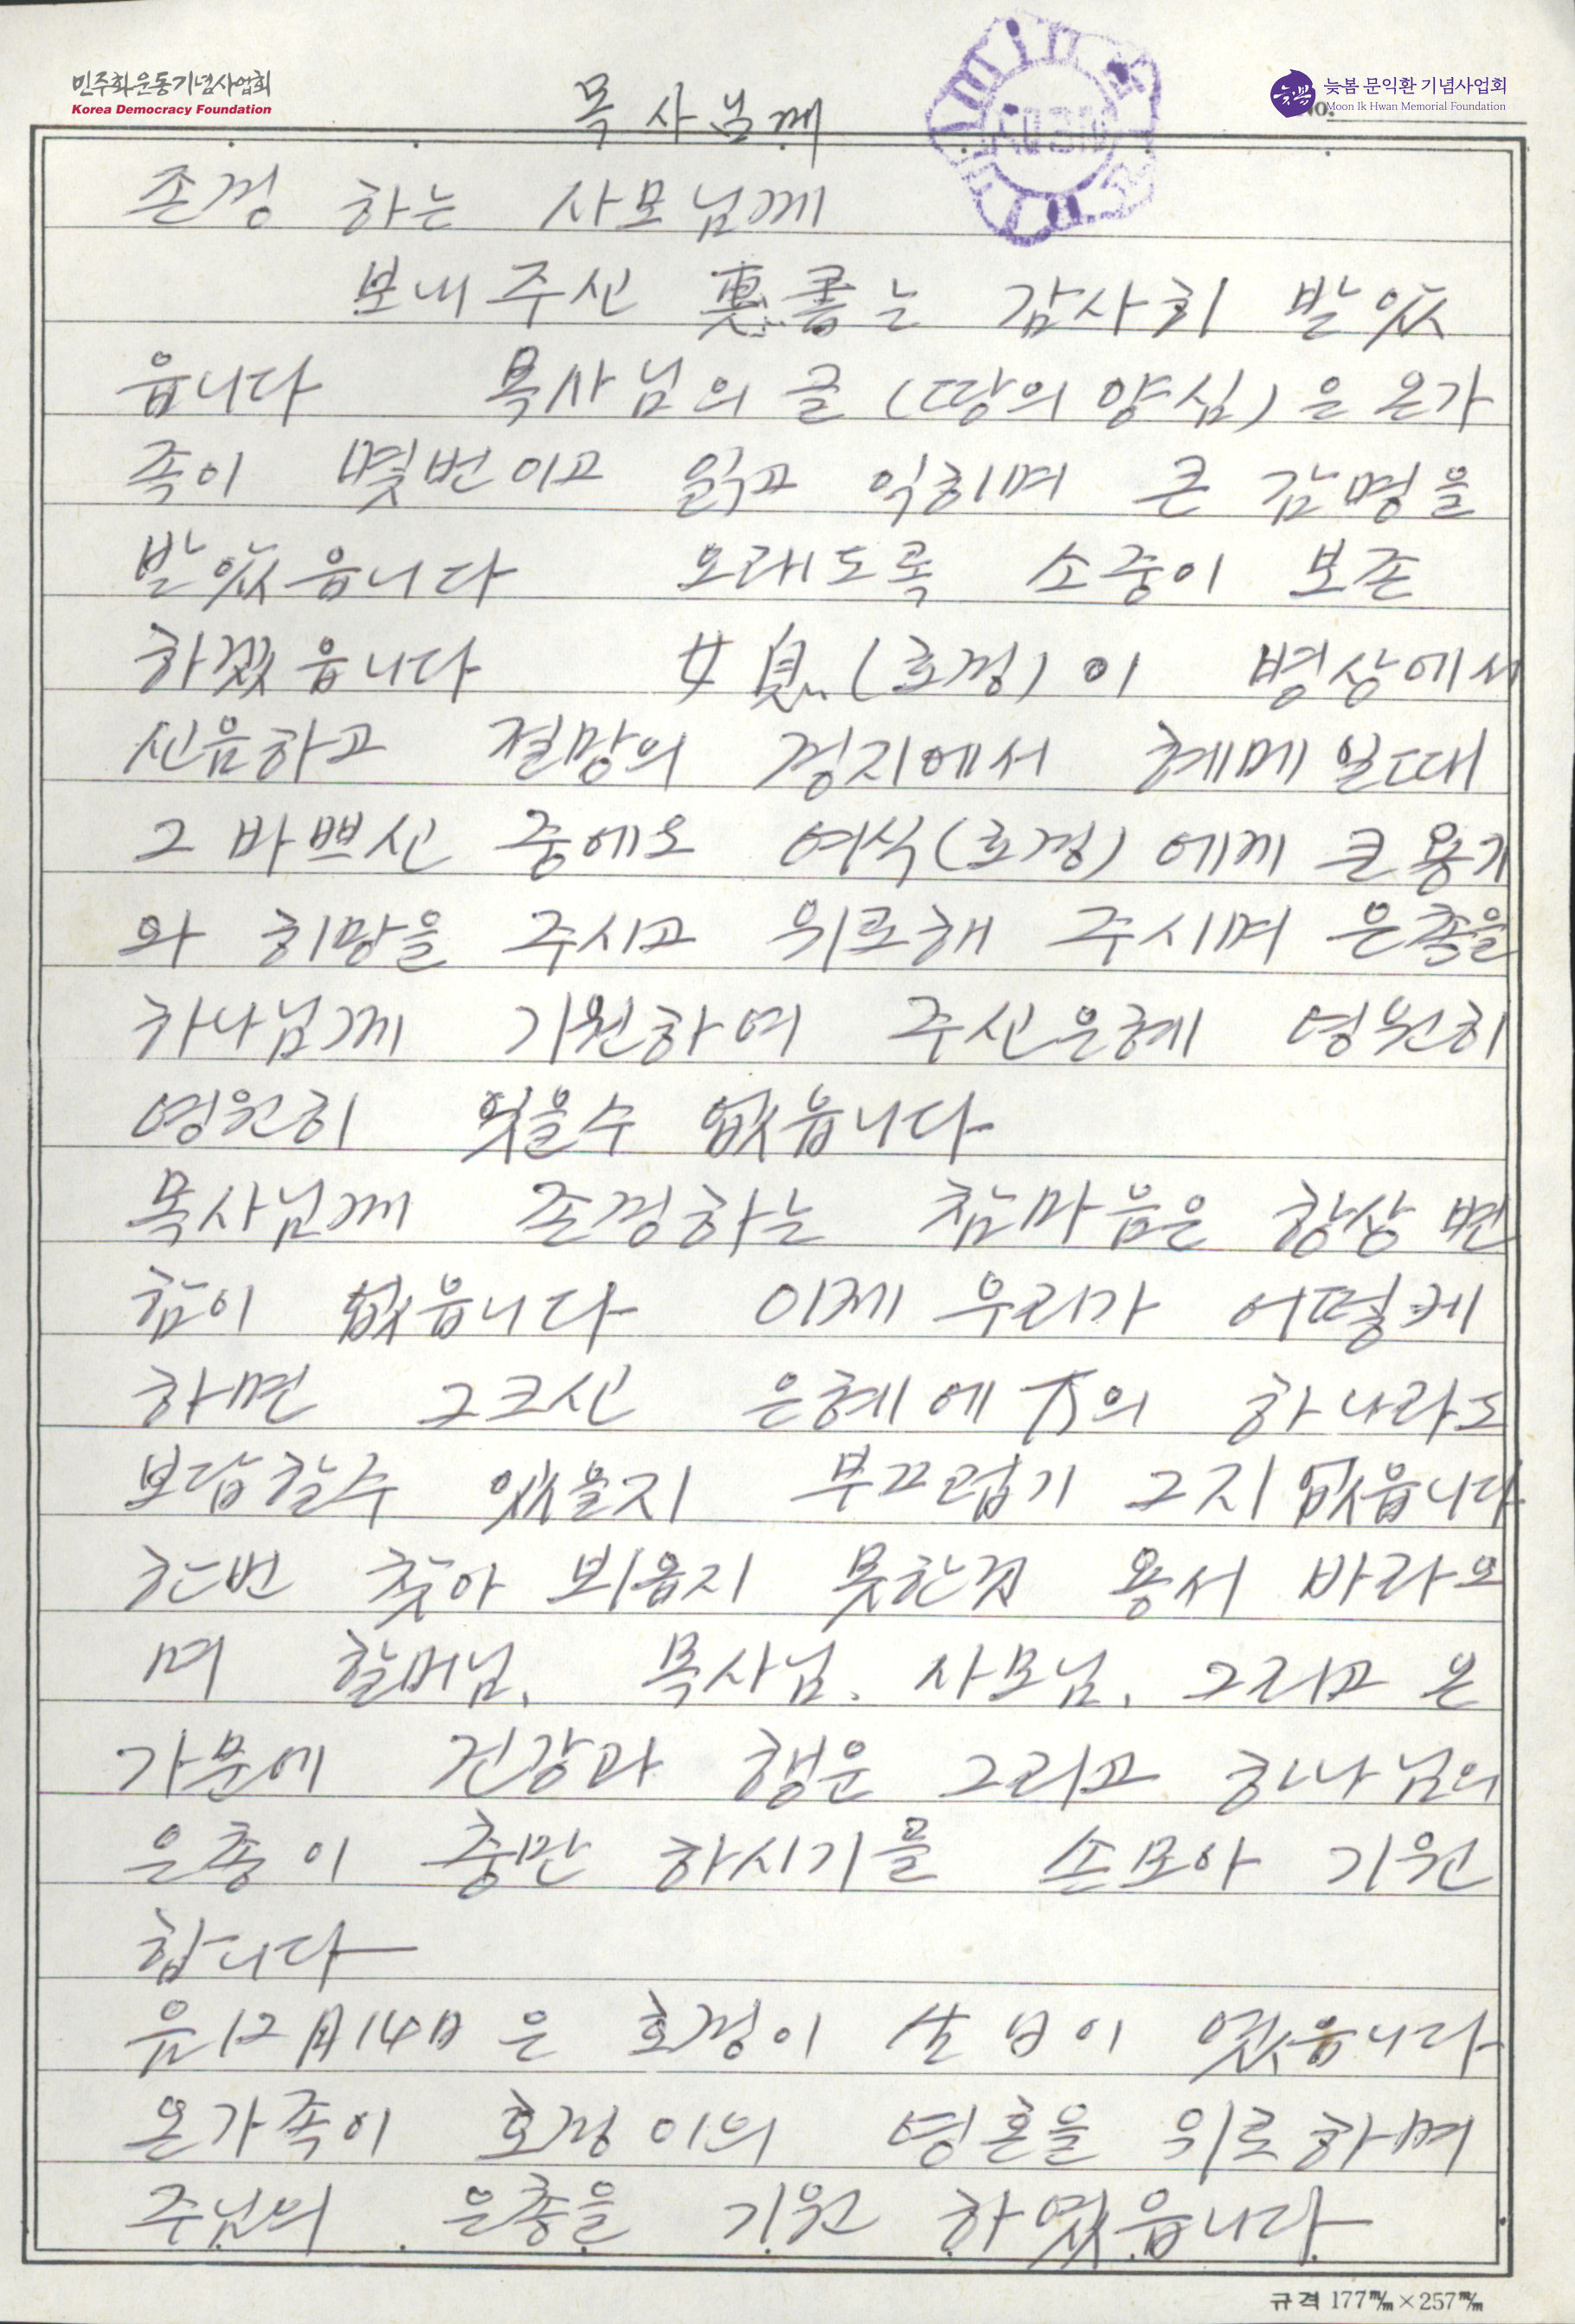 민주화운동기념사업회
Korea Democracy Foundation
늦봄 문익환 기념사업회
Moon Ik Hwan Memorial Foundation
No.
목사님께
존경 하는 사모님께
보내주신 惠書는 감사히 발았
읍니다 목사님의 글 (땅의 양심)은 온가
족이 몇번이고 읽고 익히며 큰 감명을
발았읍니다 오래도록 소중이 보존
하겠읍니다 女息(호경)이 병상에서
신음하고 절망의 경지에서 헤메일때
그 바쁘신 중에도 여식(호경)에게 큰 용기
와 희망을 주시고 위로해 주시며 은총을
하나님께 기원하여 주신은혜 영원히
영원히 잊을수 없읍니다
목사님께 존경하는 참마음은 항상 변
함이 없읍니다 이제 우리가 어떻게
하면 그크신 은혜에 의 하나라도
보답할수 있을지 부끄럽기 그지없읍니다
한번 찾아 뵈옵지 못한것 용서 바라오
며 할머님, 목사님, 사모님, 그리고 온
가문에 건강과 행운 그리고 하나님의
은총이 충만 하시기를 손모아 기원
합니다
음12月14日은 호경이 生日이 였읍니다
온가족이 호경이의 영혼을 위로하며
주님의 은총을 기원 하였읍니다
규격 177㎜×257㎜